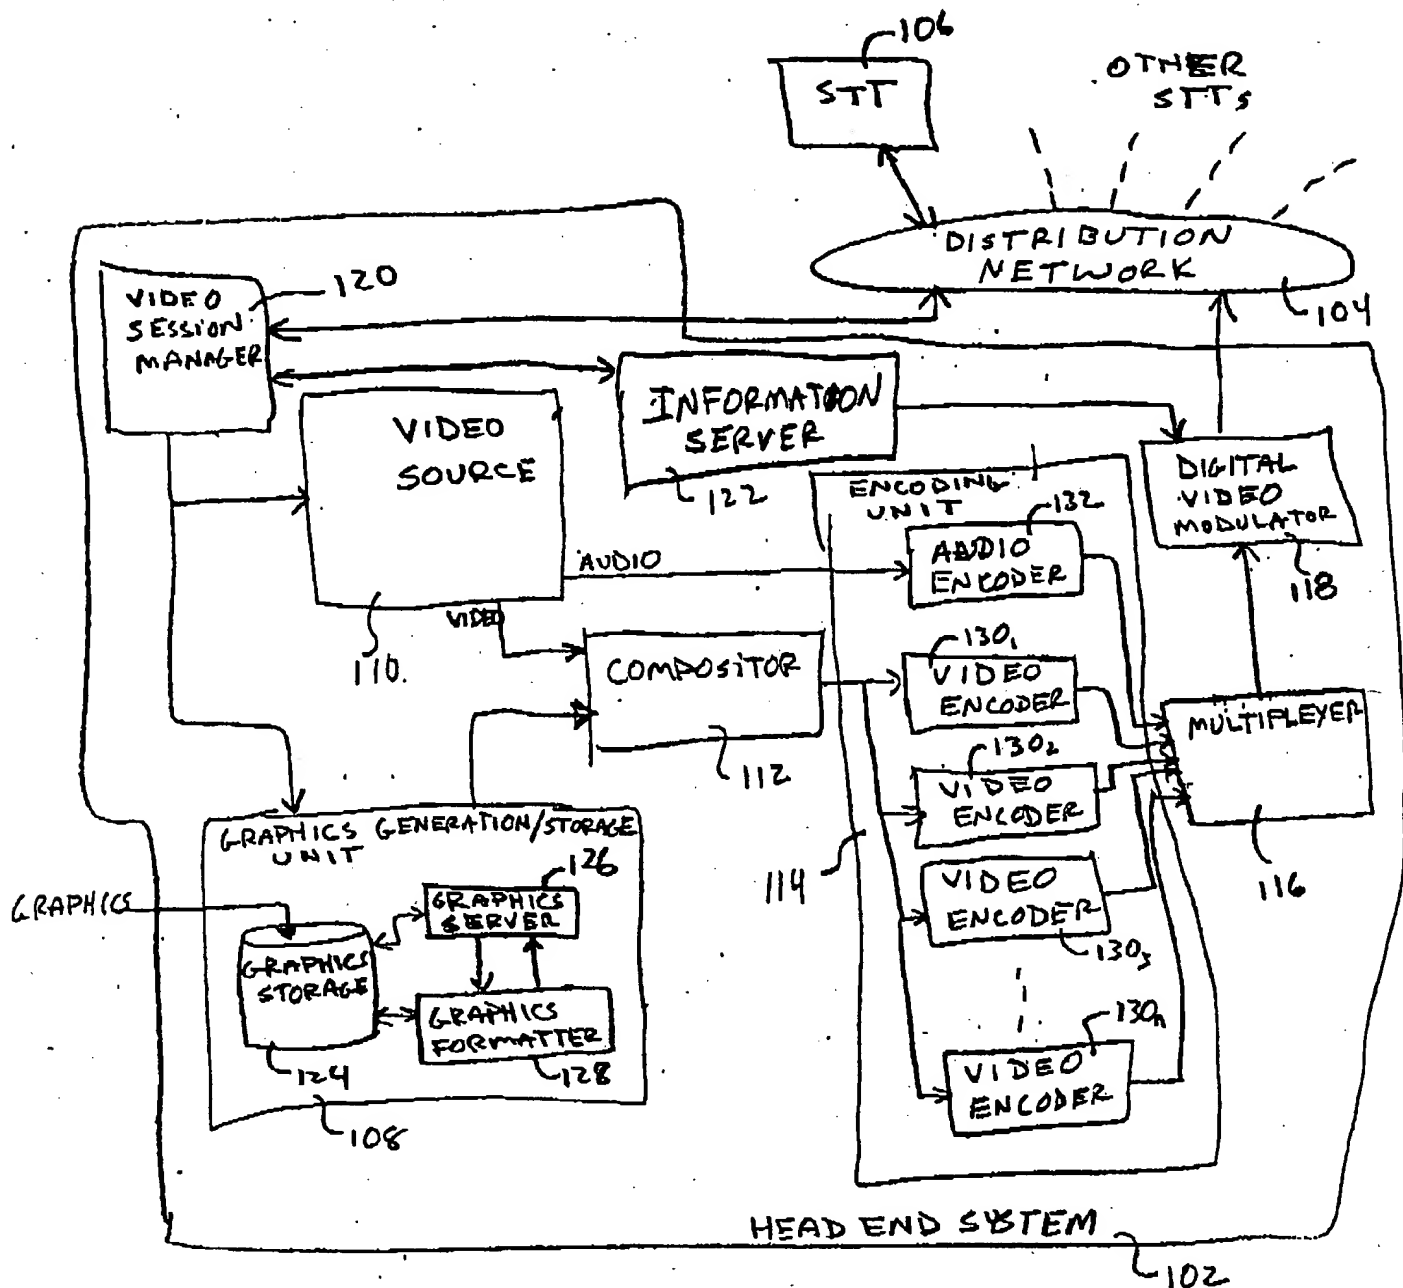 106
STT
OTHER
STTs
DISTRIBUTION
NETWORK
104
VIDEO
SESSION
MANAGER
120
INFORMATION
SERVER
122
VIDEO
SOURCE
110
AUDIO
VIDEO
ENCODING
UNIT
132
AUDIO
ENCODER
DIGITAL
VIDEO
MODULATOR
118
COMPOSITOR
112
130₁
VIDEO
ENCODER
130₂
VIDEO
ENCODER
VIDEO
ENCODER
130₃
130n
VIDEO
ENCODER
114
MULTIPLEXER
116
GRAPHICS GENERATION/STORAGE
UNIT
GRAPHICS
126
GRAPHICS
SERVER
GRAPHICS
STORAGE
124
GRAPHICS
FORMATTER
128
108
HEAD END SYSTEM
102